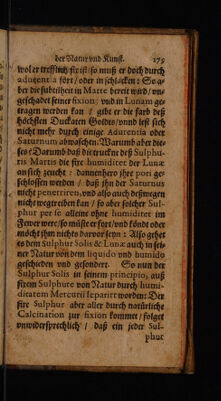 der Natur vnd Kunst. 179
wol er trefflich fix ist / so muß er doch durch
adurent a fort / oder in schlacken: So a-
ber die subtilheit in Marte bereit wird / vn-
geschadet seiner fixion / vnd in Lunam ge-
tragen werden kan / gibt er die farb deß
höchsten Ducaten Goldts / vnnd lest sich
nicht mehr durch einige Adurentia oder
Saturnum abwaschen. Warumb aber die-
ses? Darumb daß die truckne deß Sulphu-
ris Martis die fixe humiditet der Lunæ
an sich zeucht / dannenhero ihre pori ge-
schlossen werden / daß ihn der Saturnus
nicht penetriren, vnd also auch deßwegen
nicht wegtreiben kan / so aber solcher Sul-
phur per se alleine ohne humiditet im
Fewer were / so müste er fort / vnd könde oder
möcht ihm nichts darvor seyn: Also gehet
es dem Sulphur Solis & Lunæ auch in sei-
ner Natur von dem liquido vnd humido
geschieden vnd gesondert. So nun der
Sulphur Solis in seinem principio, auß
fixem Sulphure von Natur durch humi-
ditatem Mercurii separirt worden: Der
fixe Sulphur aber aller durch natürliche
Calcination zur fixion kommet / folget
vnwidersprechlich / daß ein jeder Sul-
phur